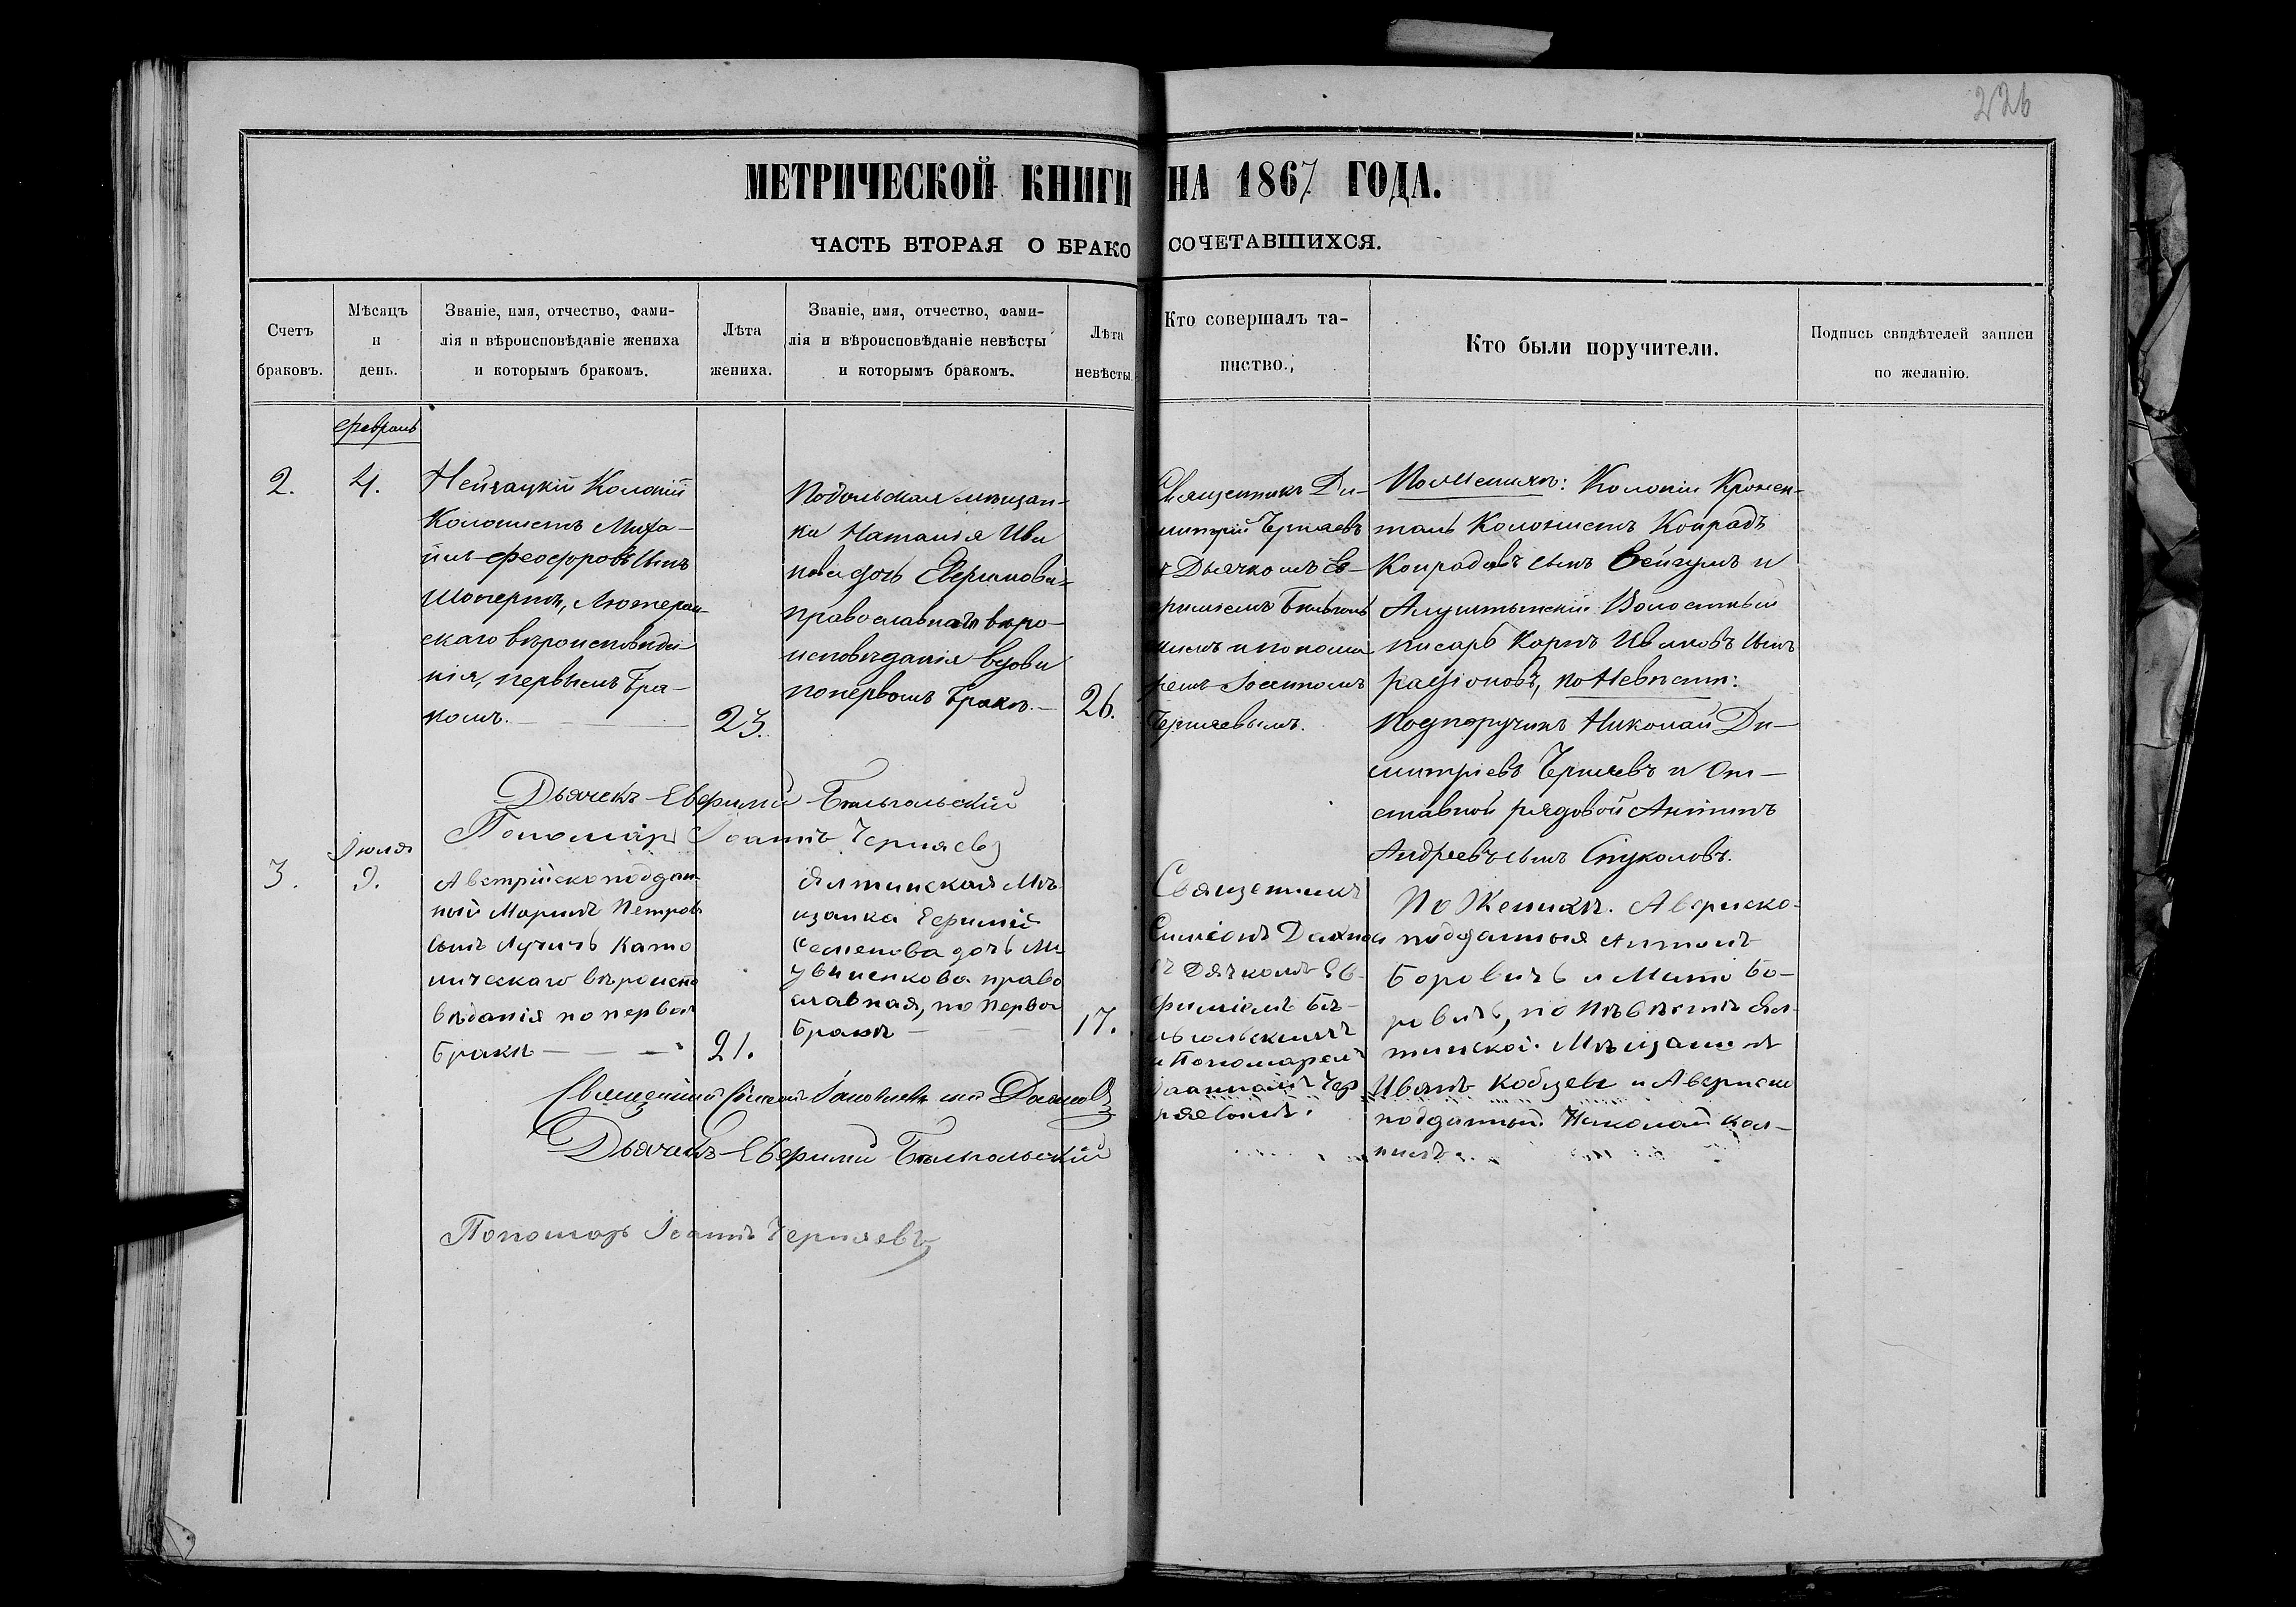 226
МЕТРИЧЕСКОЙ КНИГИ НА 1867 ГОДА.
ЧАСТЬ ВТОРАЯ О БРАКОСОЧЕТАВШИХСЯ.
Счетъ
браковъ.
Мѣсяцъ
и
день.
Званіе, имя, отчество, фами-
лія и вѣроисповѣданіе жениха
и которымъ бракомъ.
Лѣта
жениха.
Званіе, имя, отчество, фами-
лія и вѣроисповѣданіе невѣсты
и которымъ бракомъ.
Лѣта
невѣсты.
Кто совершалъ та-
инство.
Кто были поручители.
Подпись свидѣтелей записи
по желанію.
февраль
2.
4.
Нейзацкій Колоніи
Колонистъ Миха-
илъ Феодоровъ сынъ
Шоперпъ, Лютеран-
скаго вѣроисповѣда-
нія, первымъ бра-
комъ.
23.
Подольская мѣщан-
ка Наталія Ива
нова дочь
православнаго вѣро-
исповѣданія вдова
по первомъ бракѣ.
26.
Священникъ Ди-
митрій Черняевъ
съ Дьячкомъ Ев-
фиміемъ Бѣльголь
скимъ и понома
ремъ Іоанномъ
Черняевымъ.
По Женихѣ: Колоніи Кронен-
таль Колонистъ Конрадъ
Конрадовъ сынъ и
Алуштинскій Волостный
писарь Карпъ Ивановъ сынъ
Радіоновъ, по Невѣстѣ:
Подпоручикъ Николай Ди-
митріевъ Черняевъ и От-
ставной рядовой Антипъ
Андреевъ сынъ Стуколовъ.
Дьячекъ Евфимій Бѣльгольскій
Пономарь Іоаннъ Черняевъ
Іюля
3.
9.
Австрійско поддан
ный Маринъ Петровъ
сынъ Лучичъ Като
лическаго вѣроиспо
вѣданія по первом
бракѣ
21.
Ялтинская Мѣ
щанка Ефимій
Семенова дочь
право
славная, по первом
бракѣ
17.
Священникъ
Симеонъ Дахнов
съ Дячкомъ Ев-
фиміемъ Бѣ-
льгольскимъ
и Пономаремъ
Іоанномъ Чер
няевымъ.
По Женихѣ. Аверско-
подданныя Антонъ
Боровичъ и Мато Бо-
ровичъ, по Невѣстѣ Ял-
тинской Мѣщанинъ
Иванъ Кобзевъ и Аверско
подданный Николай Кол-
Священникъ Симеонъ Іаковлевъ сынъ Дахновъ
Дьячекъ Евфимій Бѣльгольскій
Пономарь Іоаннъ Черняевъ